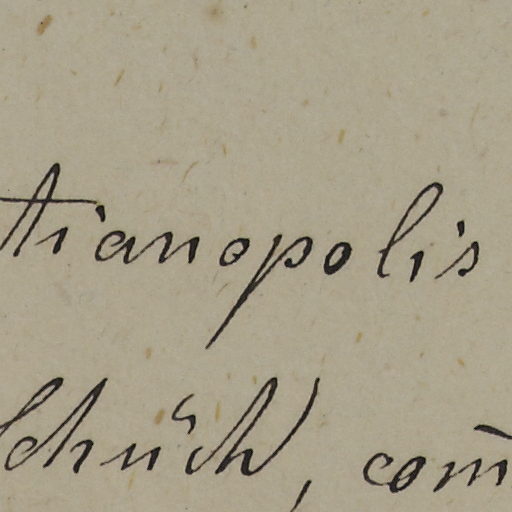 tianopolis
Schüch), com̄